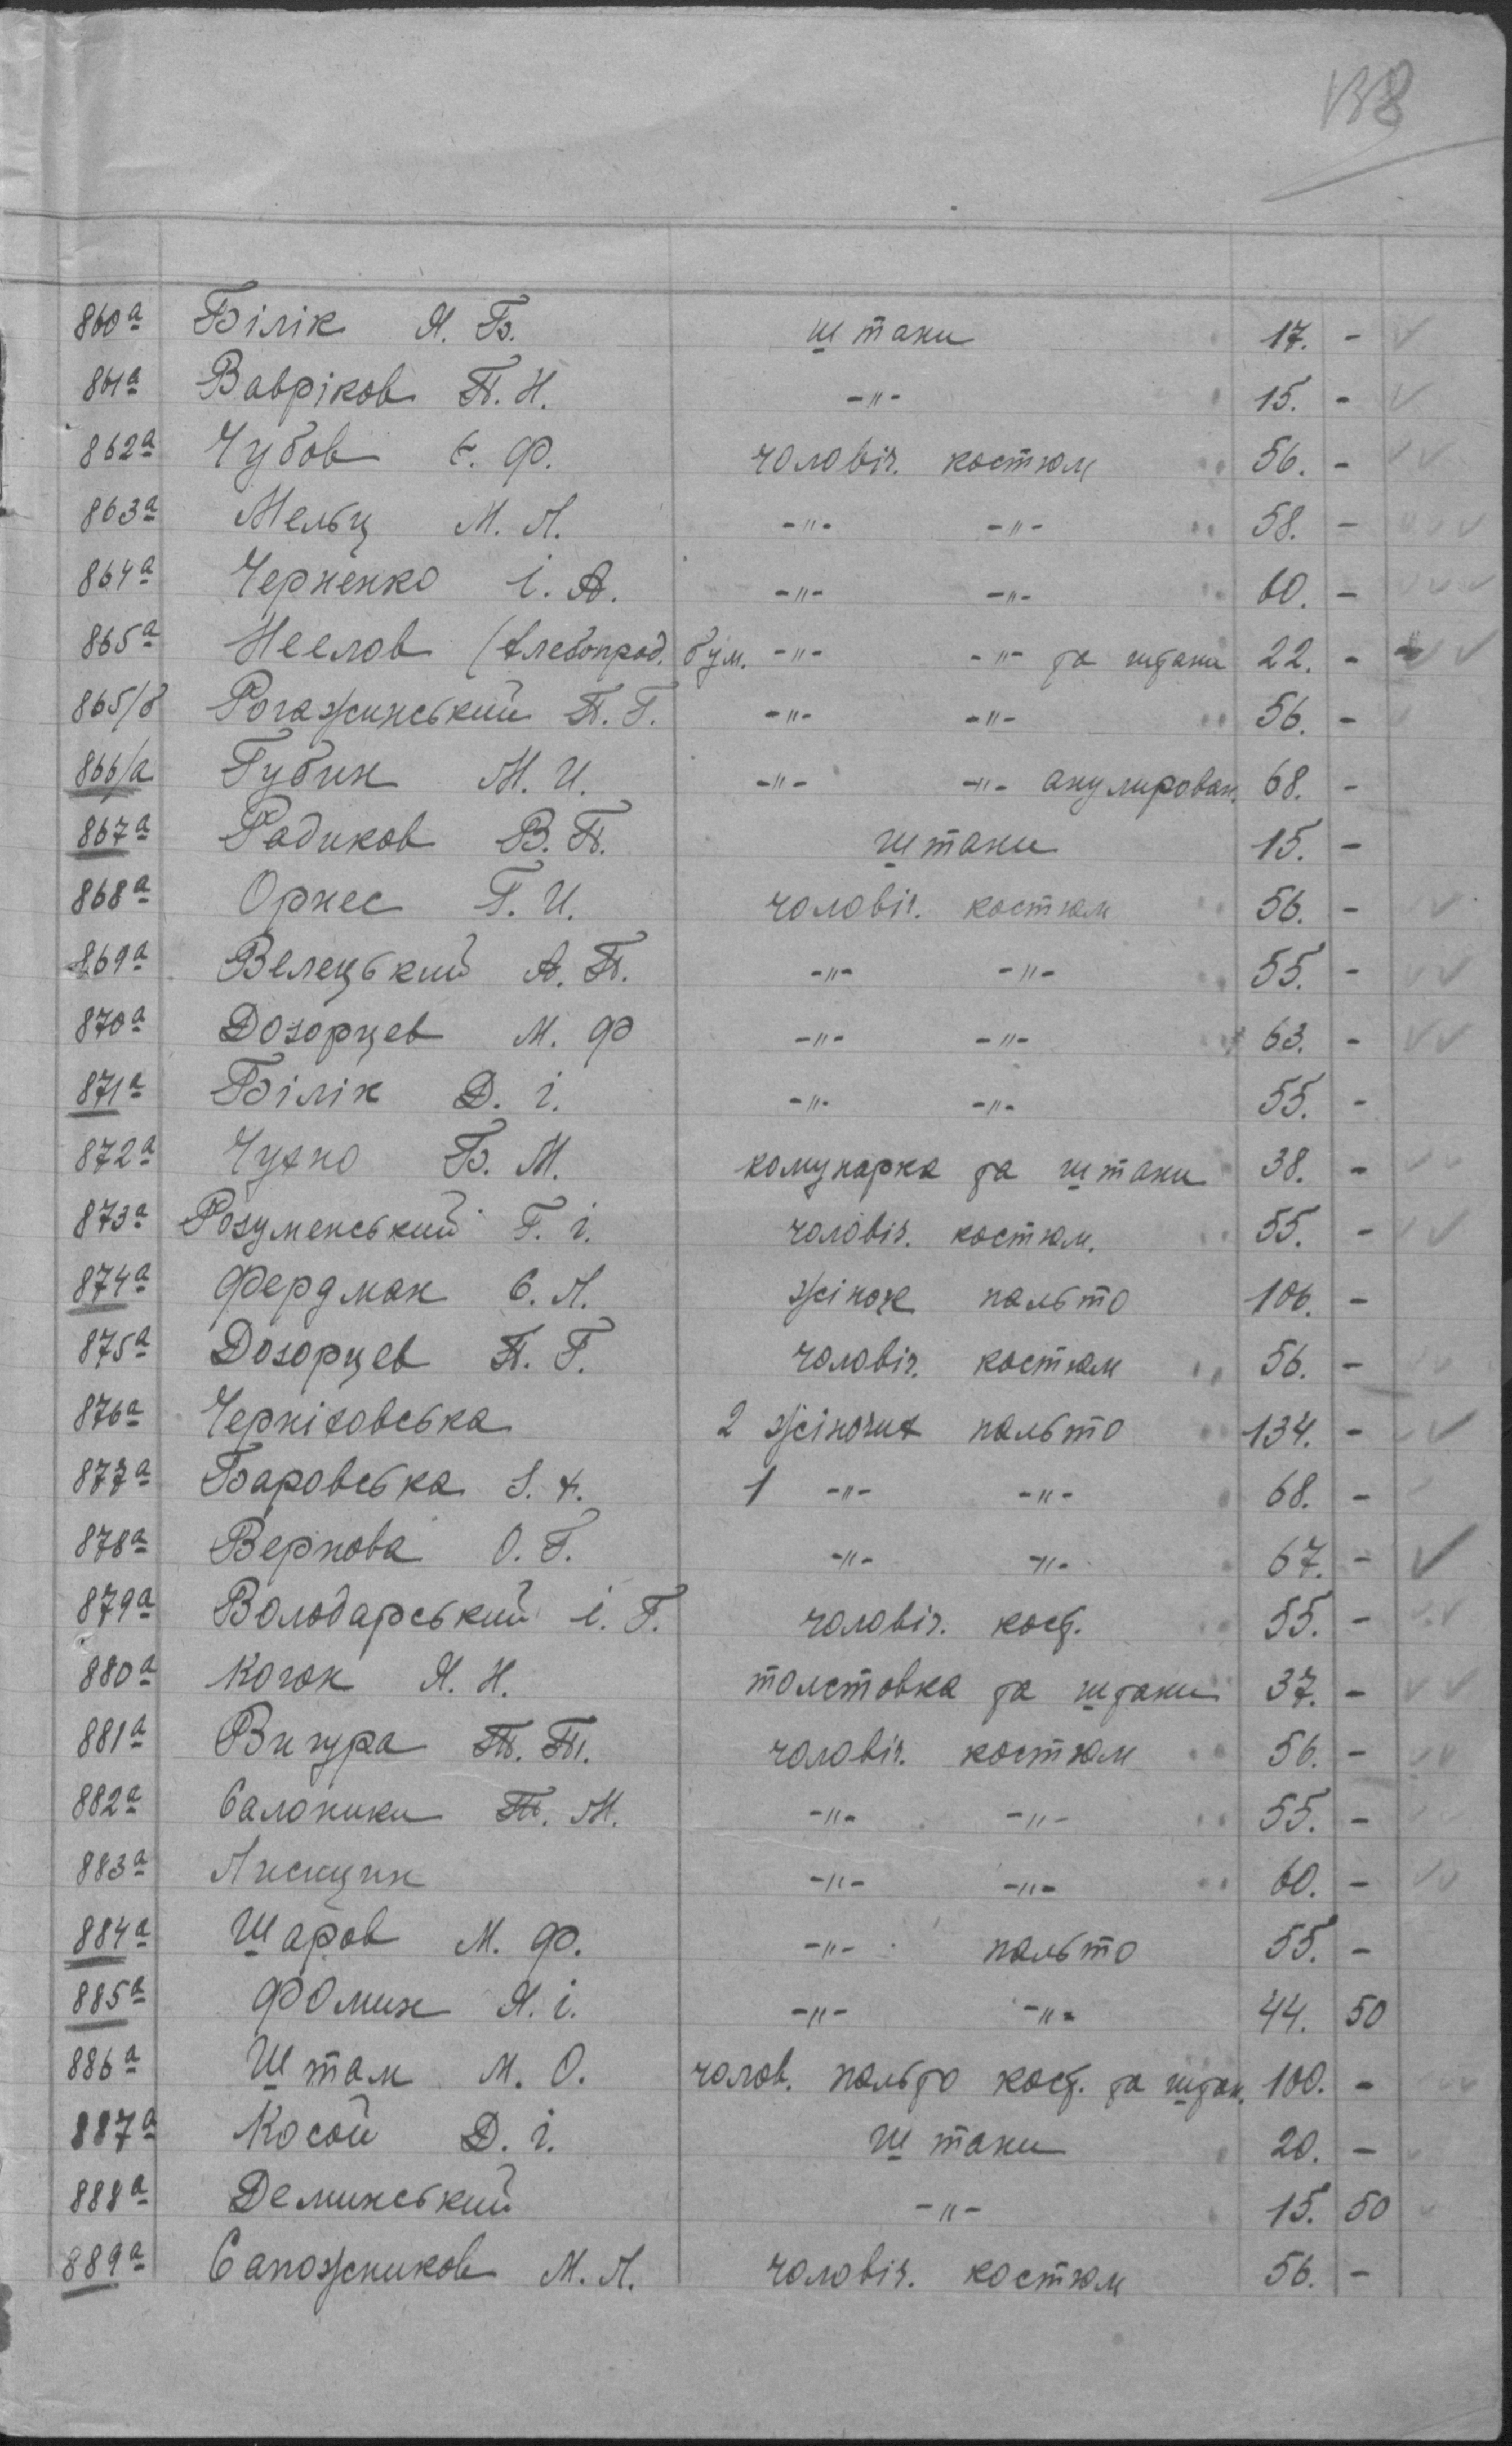 138
860а Білік Я. Б. штани 17. -
861а Вавріков П. Н. -"- 15. -
862а Чубов Є. Ф. чоловіч. костюм 56. -
863а Мельц М. Л. -"- -"- 58. -
864а Черненко І. А. -"- -"- 60. -
865а Неелов (хлебопрод. бум. -"- -"- та штани 22. -
865/б Рогажинський П. Г. -"- -"- 56. -
866/а Губин М. И. -"- -"- анулирован. 68. -
867а Радиков В. П. штани 15. -
868а Орнес Г. И. чоловіч. костюм 56. -
869а Велецький А. П. -"- -"- 55. -
870а Дозорцев М. Ф -"- -"- 63. -
871а Білік Д. і. -"- -"- 55. -
872а Чухно Б. М. комунарка та штани 38. -
873а Розуменський Г. і. чоловіч. костюм. 55. -
874а Фердман С. Л. жіноч пальто 106. -
875а Дозорцев П. Г. чоловіч. костюм 56. -
876а Черніховська 2 жіночих пальто 134. -
877а Баровська 1 -"- -"- 68. -
878а Вернова О. Г. -"- -"- 67. -
879а Володарський І. Г. чоловіч. кост. 55. -
880а Коган Я. Н. толстовка та штани 37. -
881а Вигура П. П. чоловіч. костюм 56. -
882а Салоники П. М. -"- -"- 55. -
883а Лисицин -"- -"- 60. -
884а Шаров М. Ф. -"- пальто 55. -
885а Фомин Я. і. -"- -"- 44. 50
886а Штам М. О. чолов. пальто кост. та штан. 100. -
887а Косой Д. і. штани 20. -
888а Деминський -"- 15. 50
889а Сапожников М. Л. чоловіч. костюм 56. -